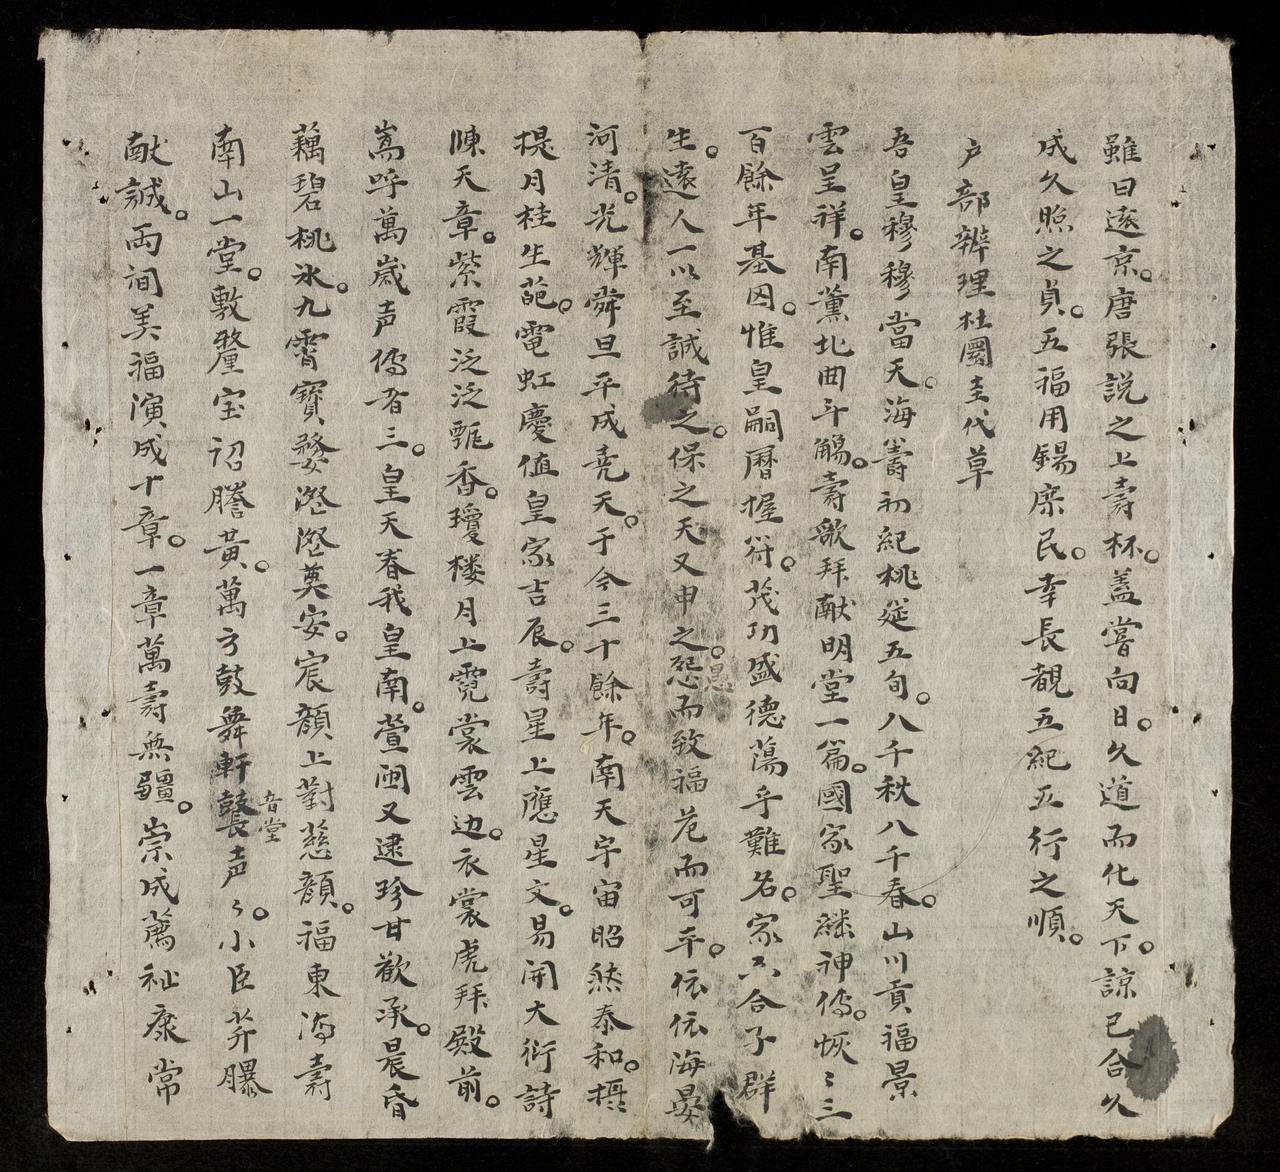 雖曰遠京。唐張説之上壽杯。蓋嘗向日。久道而化天下。諒已合久
成久照之貞。五福用錫庶民。幸長覩五紀五行之順。
户部辦理杜圭代草
吾皇穆穆當天。海籌初紀桃筵五旬。八千秋八千春。山川貢福景
雲呈祥。南薰北曲斗觴。壽歌拜献明堂一篇。國家聖繼神傳。恢〻三
百餘年基因。惟皇嗣曆握符。茂功盛德蕩乎難名。家六合子群
生。遠人一以至誠待之。保之天又申之。怨恩而致福范而可平。依依海晏
河清。光輝舜旦平成堯天。于今三十餘年。南天宇宙昭然泰和。攝
提月桂生葩。電虹慶值皇家吉辰。壽星上應星文。易開大衍詩
陳天章。紫霞泛泛飄香。瓊楼月上霓裳雲边。衣裳虎拜殿前。
嵩呼萬歲声傳者三。皇天眷我皇南。萱闈又逮珍甘歡承。晨昏
藕碧桃氷。九霄寶婺澄澄奠安。宸顔上對慈顔。福東海壽
南山一堂。敷釐宝詔謄黄。萬方鼓舞軒鼚音堂声〻。小臣芹曝
献誠。両間美福演成十章。一章萬壽無疆。崇成薦祉康常